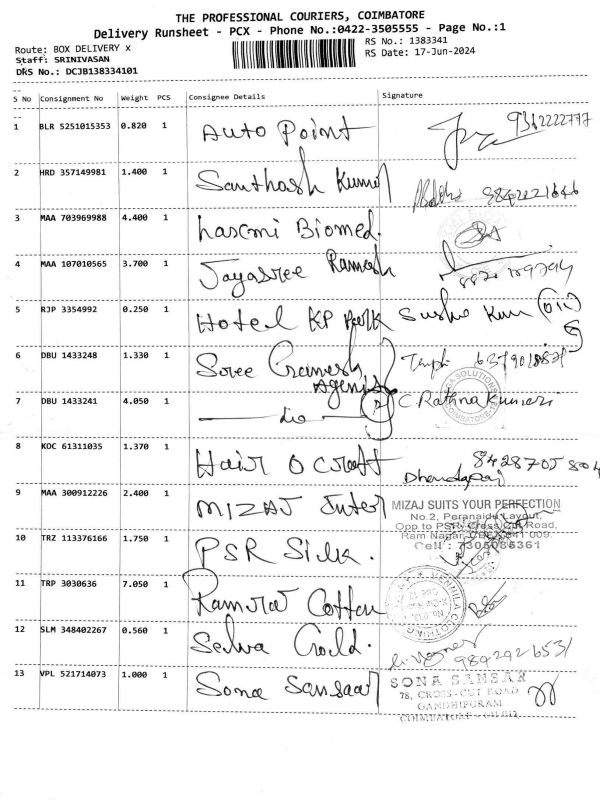 THE PROFESSIONAL COURIERS, COIMBATORE
Delivery Runsheet - PCX - Phone No.:0422-3505555 - Page No.:1
Route: BOX DELIVERY x
RS No.: 1383341
Staff: SRINIVASAN
RS Date: 17-Jun-2024
DRS No.: DCJB138334101
S No Consignment No Weight PCS Consignee Details Signature
1 BLR 5251015353 0.820 1 Auto Point 9362222777
2 HRD 357149981 1.400 1 Santhosh Kumar
3 MAA 703969988 4.400 1 hascmi Biomed.
4 MAA 107010565 3.700 1 Jayasree Ramesh
5 RJP 3354992 0.250 1 Hotel KP Park
6 DBU 1433248 1.330 1 Sree Ganesh Agencies
7 DBU 1433241 4.050 1 — do — C Rathna Kumari
8 KOC 61311035 1.370 1 Hair O Craft 8428705804
Dhandapani
9 MAA 300912226 2.400 1 MIZAJ Inter
MIZAJ SUITS YOUR PERFECTION
No.2, Peranaidu Layout,
Opp to PSR, Cross Cut Road,
Ram Nagar, CBE-641 009.
Cell : 7305085361
10 TRZ 113376166 1.750 1 PSR Silk.
11 TRP 3030636 7.050 1 Ramraj Cotton
12 SLM 348402267 0.560 1 Selva Gold. 9892926531
13 VPL 521714073 1.000 1 Sona Sansaar
SONA SANSAR
78, CROSS-CUT ROAD
GANDHIPURAM
COIMBATORE - 641 012